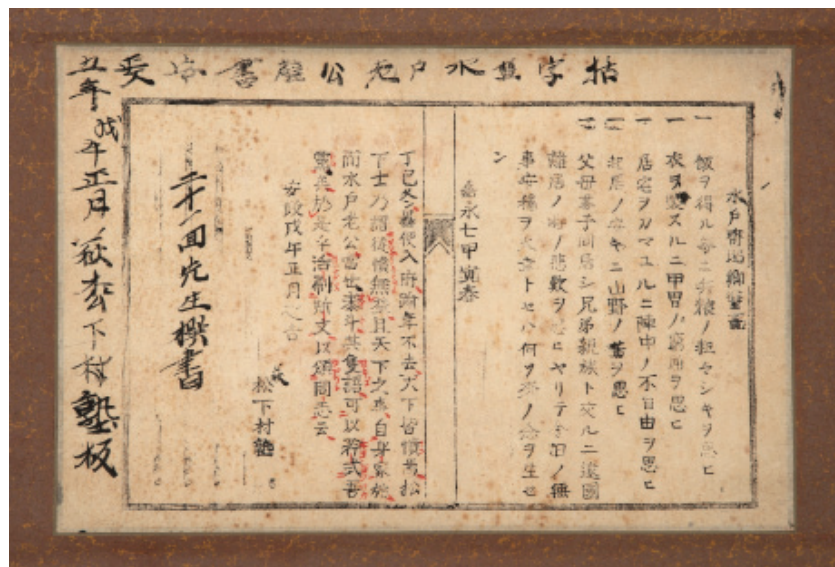 字盤水戸老公壁書
水戸齊昭卿壁書
一 飯ヲ得ル毎ニ兵粮ノ粗ヤシキヲ思ヒ
一 衣ヲ製スルニ甲冑ノ窮屈ヲ思ヒ
一 居宅ヲカマユルニ陣中ノ不自由ヲ思ヒ
一 起居ノ安キニ山野ノ苦ヲ思ヒ
一 父母妻子同居シ兄弟親族ト交ルニ遠國
離居ノ者ノ悲歎ヲ思ヒヤリテ今日ノ無
事安穏ヲ大幸トセハ何ヲ奢ノ念ヲ生セ
ン
嘉永七甲寅春
丁巳冬墨使入府踰年不去天下皆憤焉松
下士乃謂徒憤無益且天下之事自身家始
而水戸老公當世泰斗其隻語可以矜式吾
黨矣於是乎活刷斯文以頒同志云
安政戊午正月之吉
松下村塾
二十一回先生撰書
五年戊午正月 松下村塾板